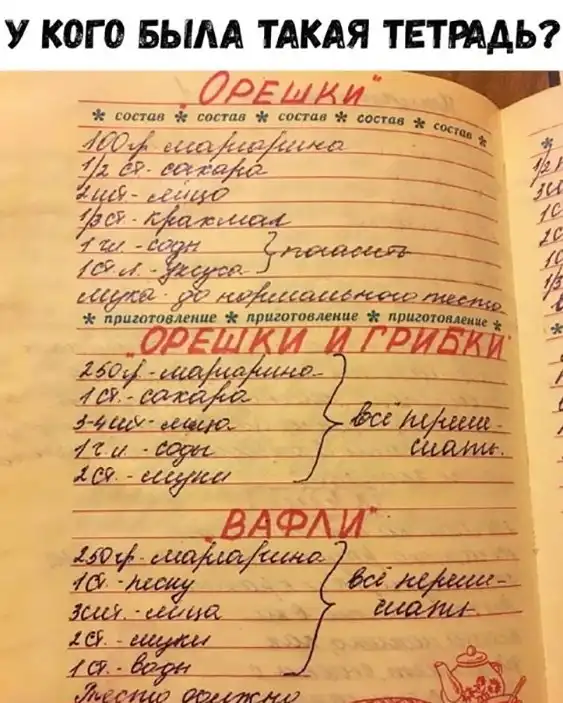 У КОГО БЫЛА ТАКАЯ ТЕТРАДЬ?
"ОРЕШКИ"
* состав * состав * состав * состав * состав *
100 гр. маргарина
1/2 ст. сахара
2 шт - яйцо
1/3 ст. крахмал
1 ч.л - соды } погасить
1 ст. л. - уксуса
мука - до нормального теста
* приготовление * приготовление * приготовление *
"ОРЕШКИ И ГРИБКИ"
250 гр. - маргарина
1 ст. - сахара
3-4 шт - яйца } всё переме-
1 ч. л - соды шать.
2 ст. - муки
"ВАФЛИ"
250 гр - маргарина
1 ст. - песку } всё переме-
3 шт. - яйца шать.
2 ст. - муки
1 ст. - воды
Тесто должно